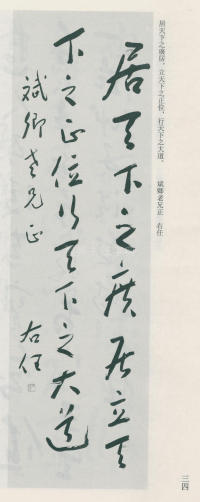 居天下之廣居、立天下之正位、行天下之大道。 斌卿老兄正 右任
居天下之廣居立天
下之正位行天下之大道
斌卿老兄正
右任
三四